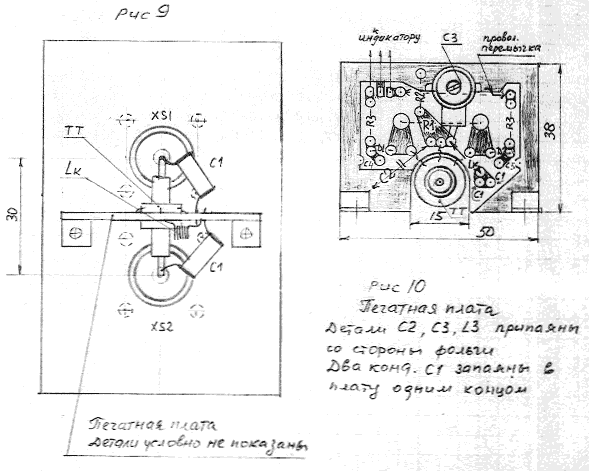 Рис 9
XS1
ТТ
C1
Lк
30
C1
XS2
Печатная плата
Детали условно не показаны
индикатору
C3
провол.
перемычка
R2
R3
R1
R3
C4
C2
Lк
C1
C1
ТТ
38
15
50
Рис 10
Печатная плата
Детали C2, C3, L3 припаяны
со стороны фольги
Два конд. C1 запаяны в
плату одним концом